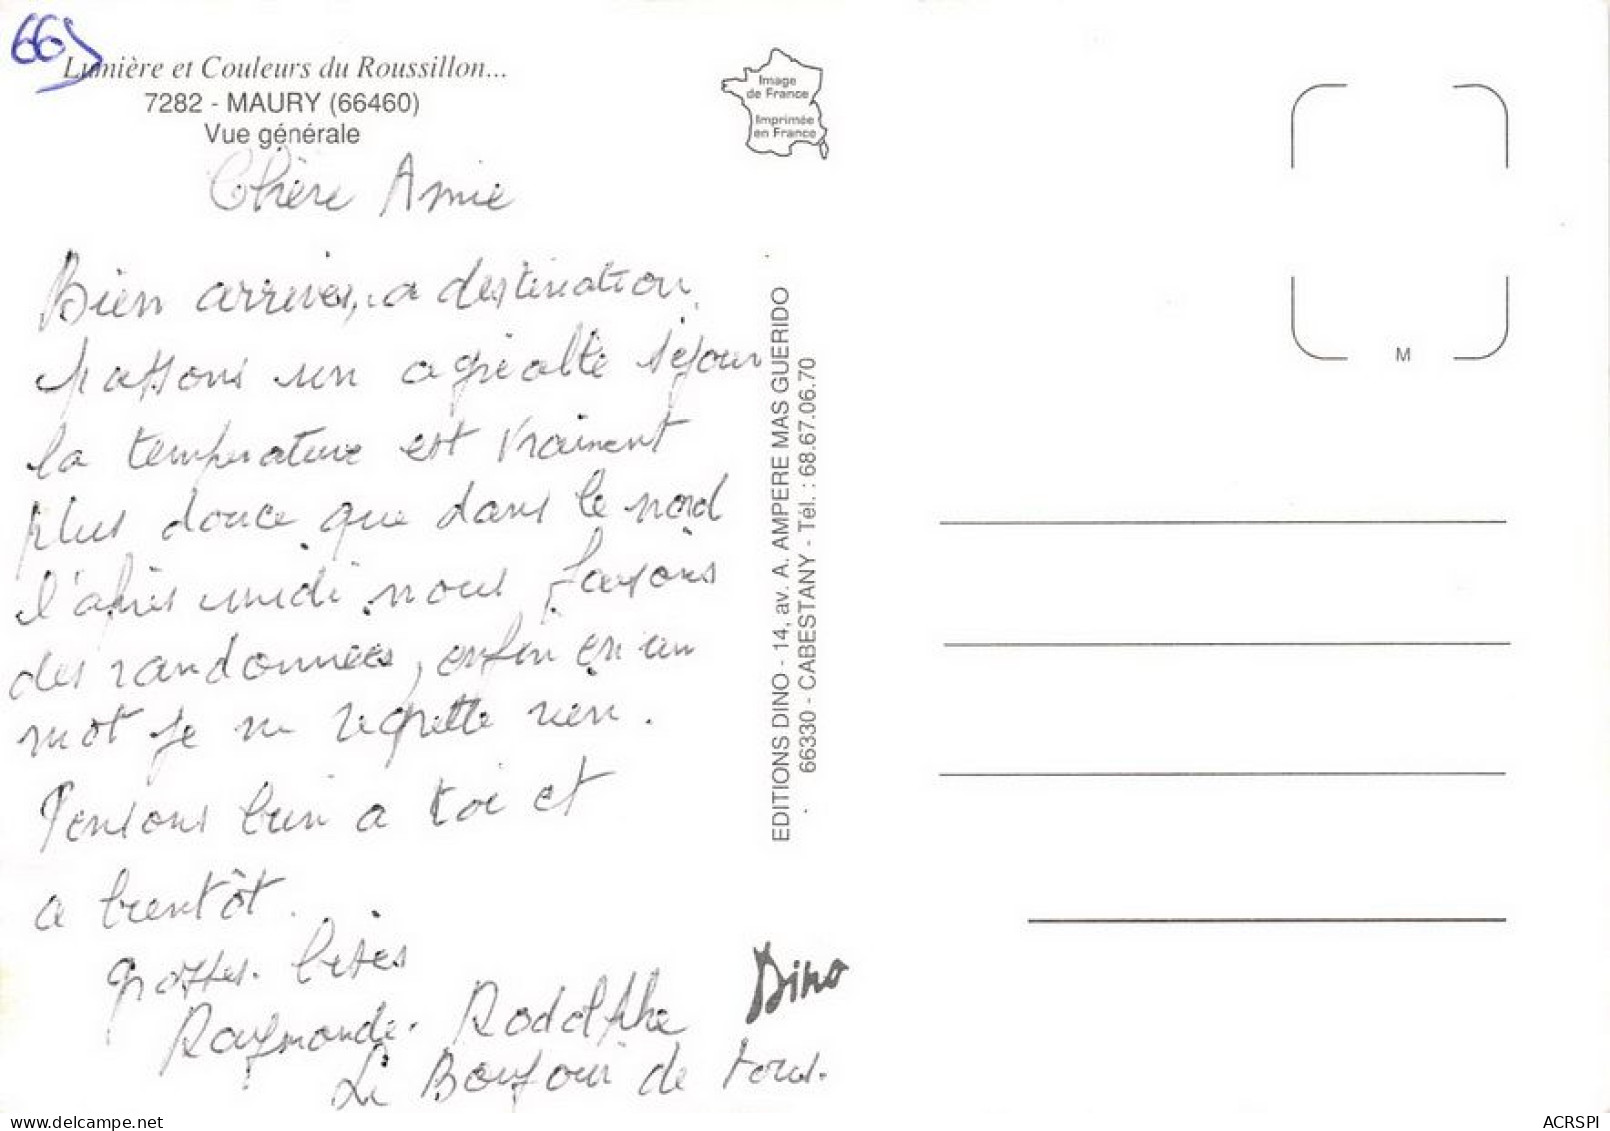 66
Lumière et Couleurs du Roussillon...
7282 - MAURY (66460)
Vue générale
Image
de France
Imprimée
en France
Chère Amie
Bien arrivés, a destination,
passons un agréable séjour
la température est vraiment
plus douce que dans le nord
l'après midi nous faisons
des randonnées, enfin en un
mot je ne regrette rien.
Pensons bien a toi et
a bientôt.
grosses bises
Raymonde. Rodolphe
Le Bonjour de tous.
EDITIONS DINO - 14, av. A. AMPERE MAS GUERIDO
66330 - CABESTANY - Tél. : 68.67.06.70
Dino
M
delcampe.net
ACRSPI